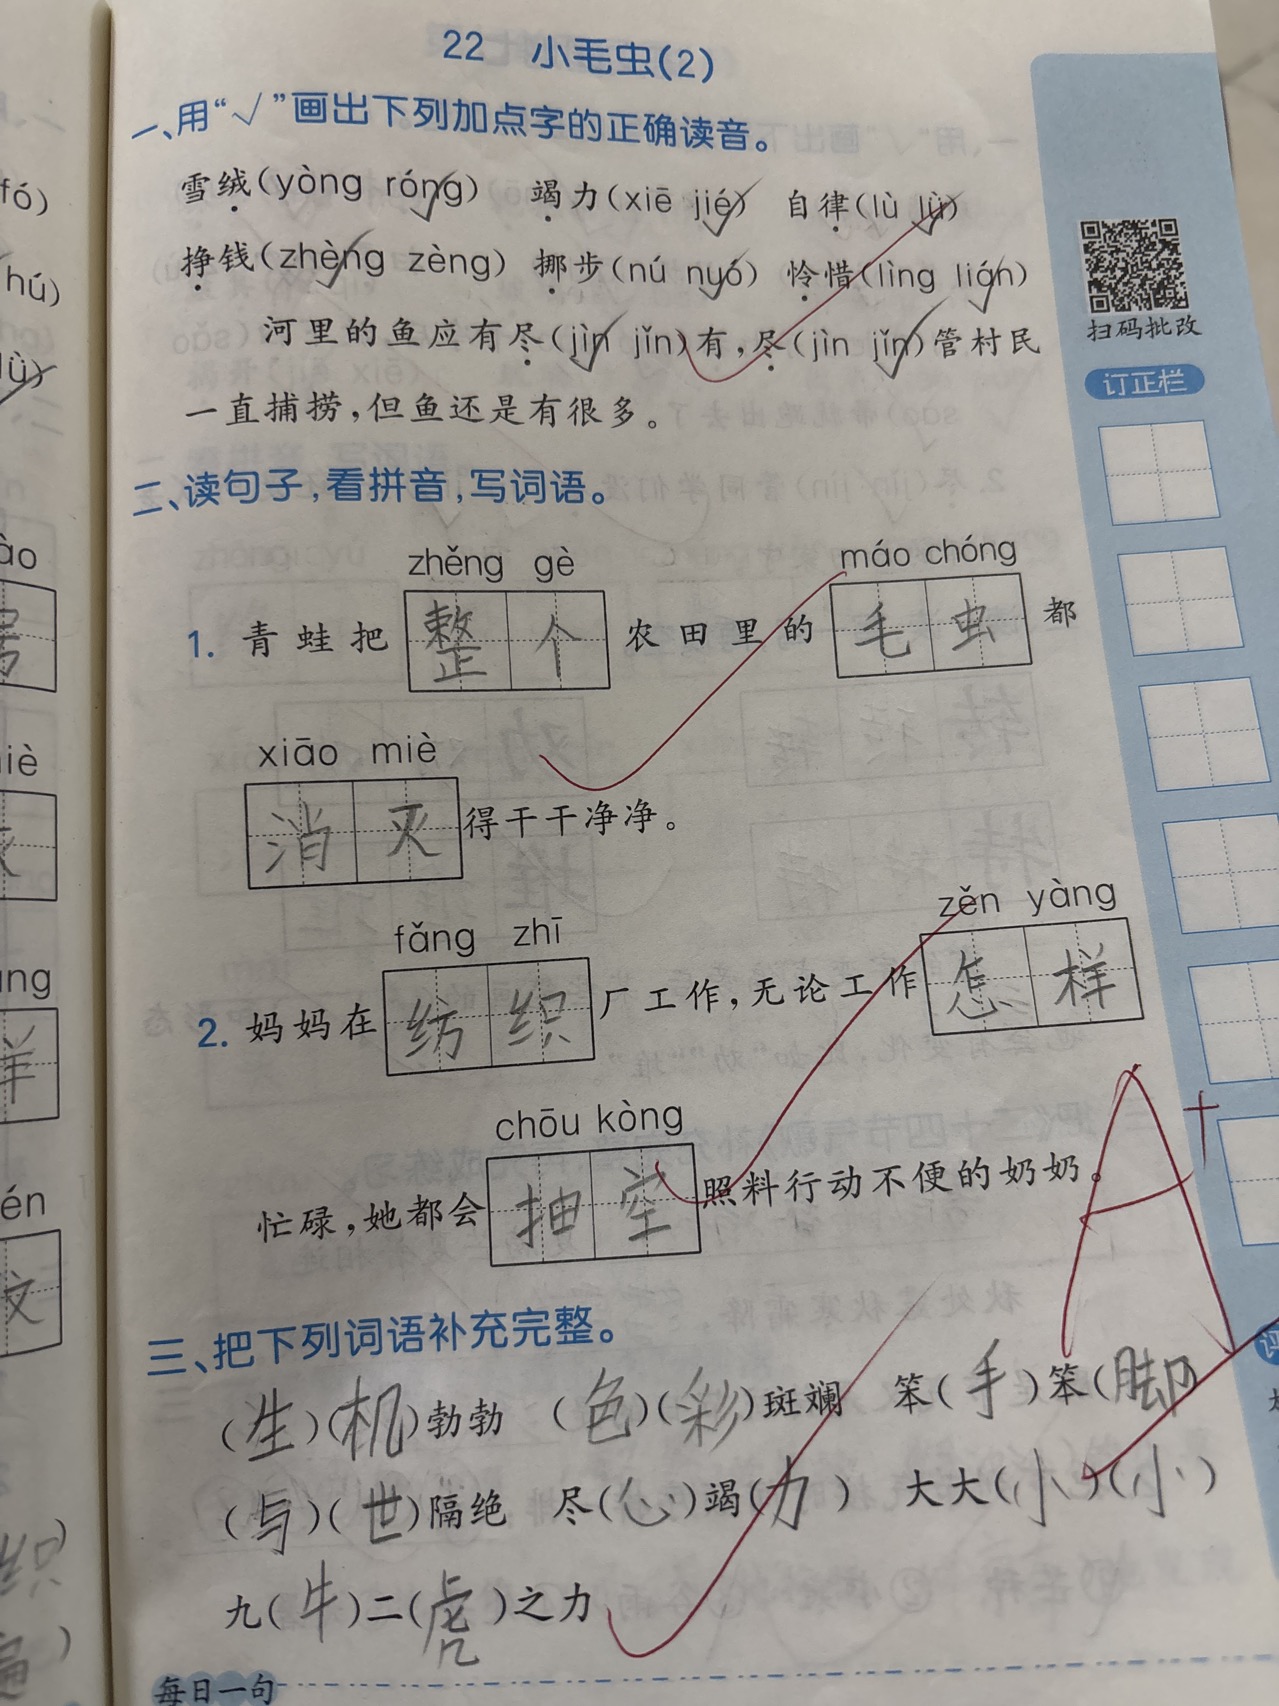 22 小毛虫(2)
一、用“√”画出下列加点字的正确读音。
雪绒(yòng róng) 竭力(xiē jié) 自律(lù lǜ)
挣钱(zhèng zèng) 挪步(nú nuó) 怜惜(lìng lián)
河里的鱼应有尽(jìn jǐn)有,尽(jìn jǐn)管村民
一直捕捞,但鱼还是有很多。
二、读句子,看拼音,写词语。
zhěng gè máo chóng
1. 青蛙把 整个 农田里的 毛虫 都
xiāo miè
消灭 得干干净净。
fǎng zhī zěn yàng
2. 妈妈在 纺织 厂工作,无论工作 怎样
chōu kòng
忙碌,她都会 抽空 照料行动不便的奶奶。
三、把下列词语补充完整。
(生)(机)勃勃 (色)(彩)斑斓 笨(手)笨(脚)
(与)(世)隔绝 尽(心)竭(力) 大大(小)(小)
九(牛)二(虎)之力
每日一句
扫码批改
订正栏
A+
fó)
hú)
lǜ)
ào
iè
én
文
织)